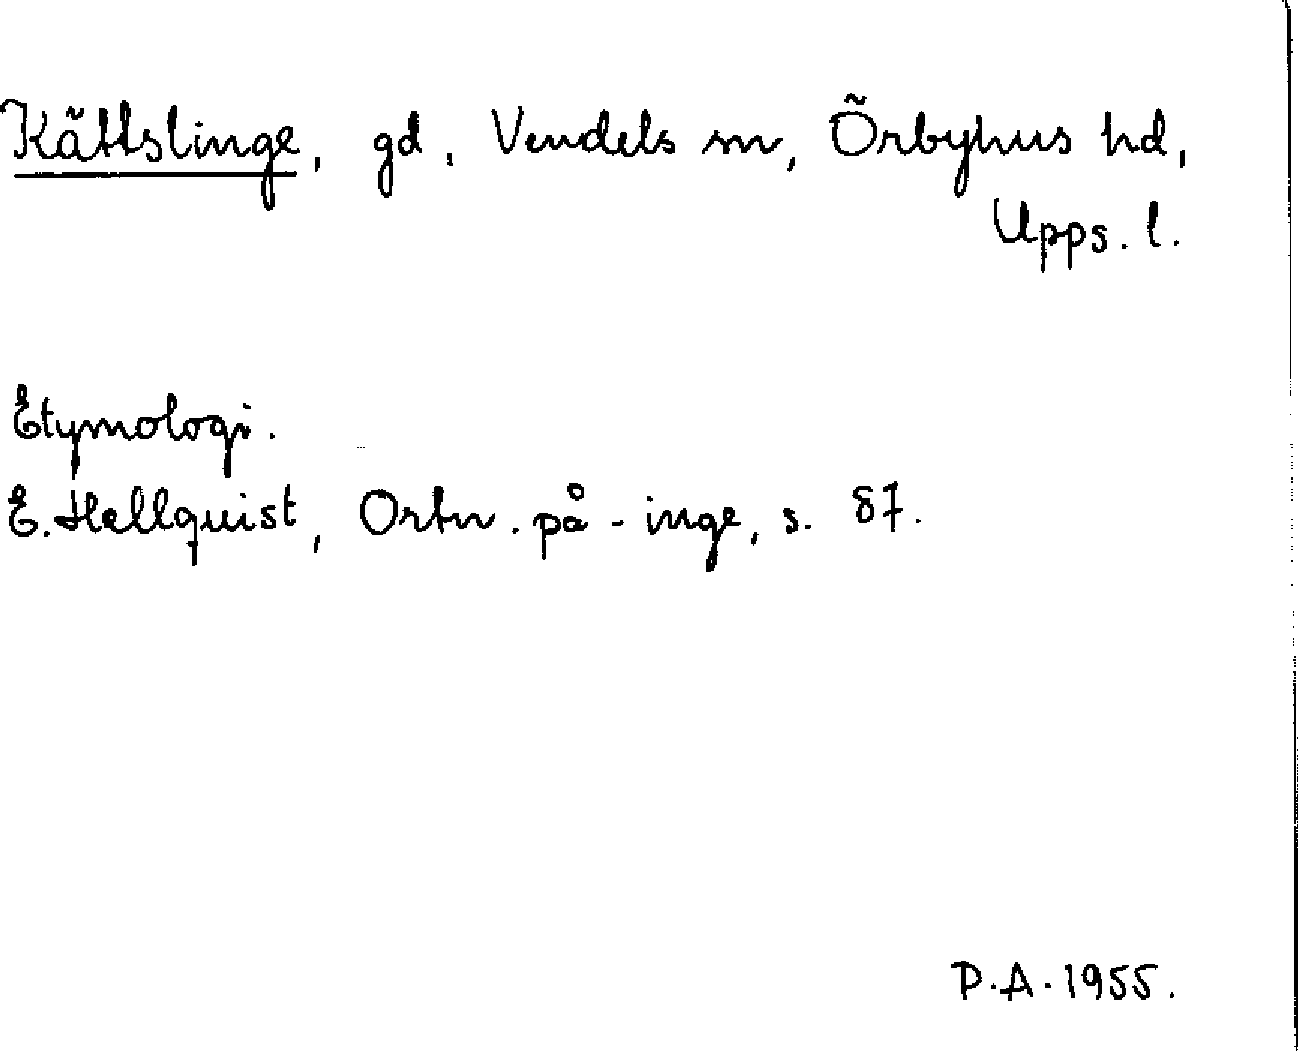 Kättslinge, gd, Vendels sn, Örbyhus hd,
Upps. l.
Etymologi.
E. Hellquist, Ortn. på -inge, s. 87.
P.A. 1955.